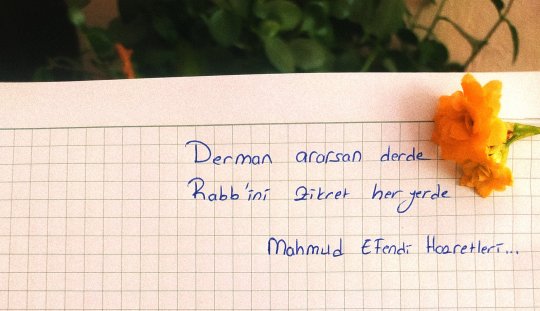 Derman ararsan derde
Rabb'ini zikret her yerde
Mahmud Efendi Hazretleri...